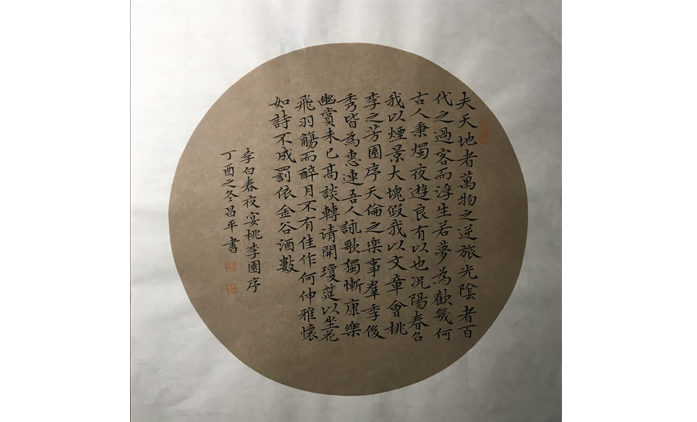 夫天地者萬物之逆旅光陰者百
代之過客而浮生若夢為歡幾何
古人秉燭夜遊良有以也況陽春召
我以煙景大塊假我以文章會桃
李之芳園序天倫之樂事羣季俊
秀皆為惠連吾人詠歌獨慚康樂
幽賞未已高談轉清開瓊筵以坐花
飛羽觴而醉月不有佳作何伸雅懷
如詩不成罰依金谷酒數
李白春夜宴桃李園序
丁酉之冬昌平書